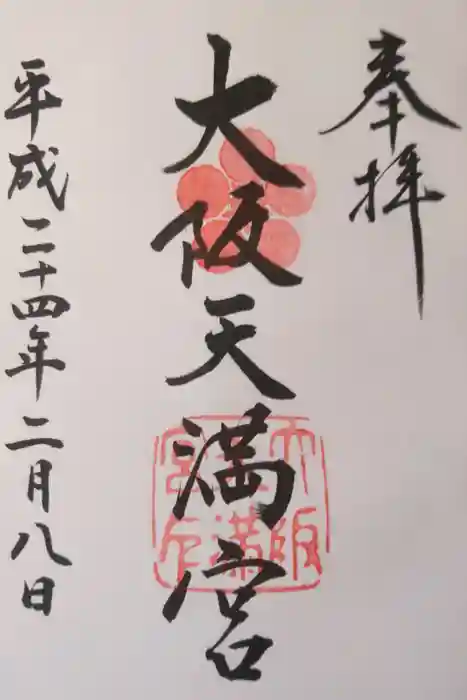 奉拝
大阪天満宮
平成二十四年二月八日
大阪
天満
宮印